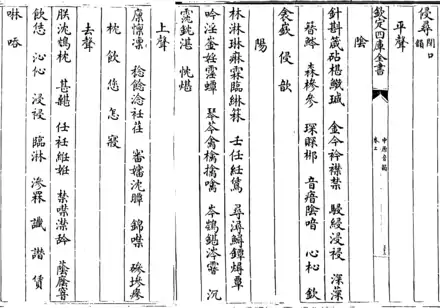 侵尋 閉口韻
平聲
欽定四庫全書
中原音韻
卷上
陰
針斟 砧椹 瑊 金今衿襟禁 駸綅浸祲 深
簪 森椮參 琛賝郴 音瘖陰喑 心杺 欽
衾嶔 侵 歆
陽
林淋琳痳霖臨 壬任紝 尋潯鱘鐔燖
吟淫崟婬霪蟫 琴芩禽檎擒噙 岑 涔 沉
湛 忱煁
上聲
廩懍凜 稔 淰衽荏 審嬸沈瞫 錦噤 磣墋瘆
枕 飲 您 怎 寢
去聲
朕沈鴆枕 甚 任衽紝妊 禁噤 蔭廕窨
飲恁 沁 浸祲 臨淋 滲罧 讖 譖 賃
啉 唚